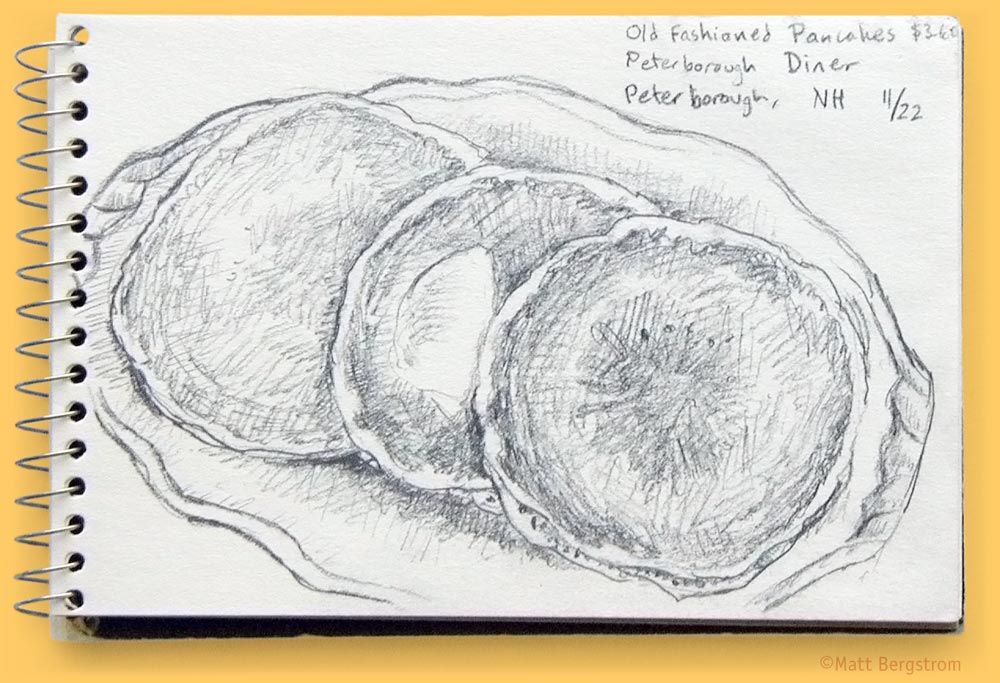 Old Fashioned Pancakes $3.60
Peterborough Diner
Peterborough, NH 11/22
©Matt Bergstrom